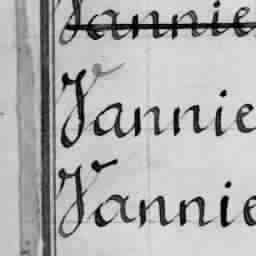 Vannie
Vannie
Vannie